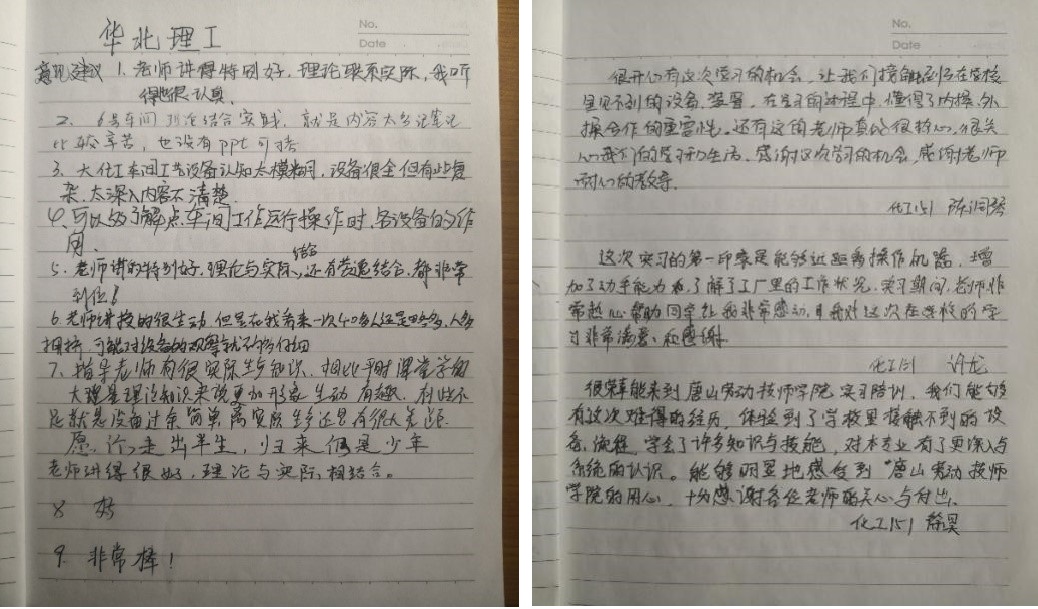 No.
Date
华北理工
意见建议 1. 老师讲得特别好，理论联系实际，我听
得也很认真。
2. 6号车间 理论结合实践，就是内容太多记笔记
比较辛苦，也没有ppt可拷
3. 大化工车间工艺设备认知太模糊，设备很全但有些复
杂，太深入内容不清楚。
4. 可以多了解点车间工作运行操作时，各设备的作
用。
5. 老师讲的特别好，理论与实际结合，还有劳逸结合，都非常
到位！
6. 老师讲授的很生动，但是在我看来一次40多人还是太多，人多
拥挤，可能对设备的观察就不够仔细
7. 指导老师有很实际生产知识，相比平时课堂学的
大噻是理论知识来说更加形象生动有趣，有些不
足就是设备过余简单，离实际生产还是有很大差距。
愿你走出半生，归来仍是少年
老师讲得很好，理论与实际相结合。
8 好
9. 非常棒！
No.
Date
很开心有这次学习的机会，让我们接触到了在学校
里见不到的设备、装置，在学习的过程中，懂得了内操、外
操合作的重要性。还有这的老师真的很热心，很关
心我们的学习和生活，感谢这次学习的机会，感谢老师
对我们的教导。
化工151
这次实习的第一印象是能够近距离操作机器，增
加了动手能力，了解了工厂里的工作状况，实习期间，老师非
常热心帮助同学让我非常感动，我对这次在学校的学
习非常满意，和感谢。
化工151 许龙
很荣幸能来到唐山劳动技师学院实习陪训，我们能够
有这次难得的经历，体验到了学校里接触不到的设
备、流程，学会了许多知识与技能，对本专业有了更深入与
系统的认识。能够明显地感受到"唐山劳动技师
学院的用心，十分感谢各位老师的关心与付出。
化工151